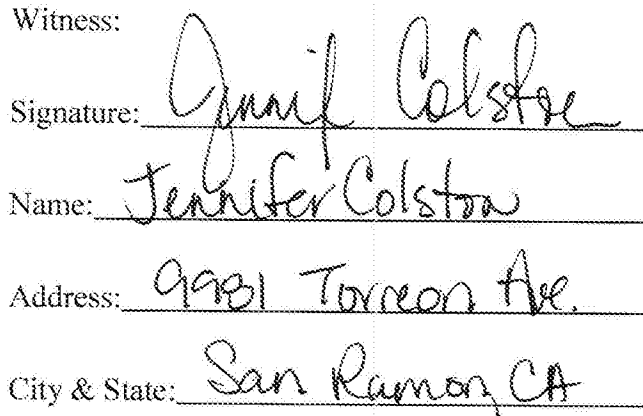 Witness:
Signature: Jennif Colston
Name: Jennifer Colston
Address: 9981 Torreon Ave.
City & State: San Ramon, CA